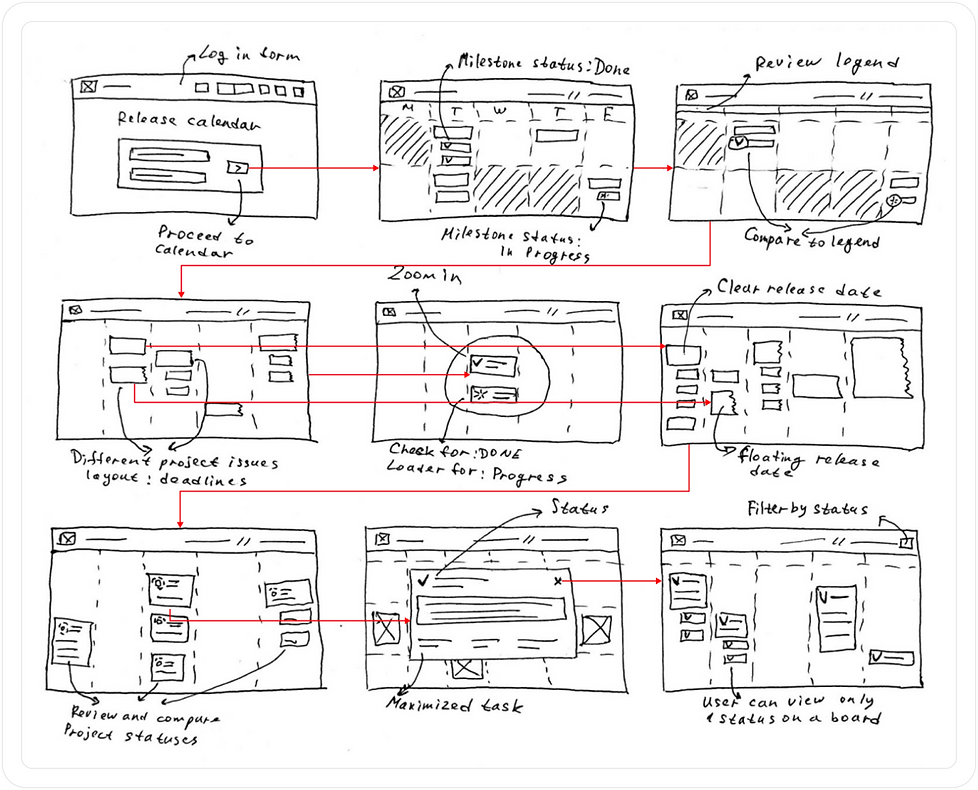 Log in form
Release calendar
Proceed to
Calendar
Milestone status: Done
M T W T F
Milestone status:
In Progress
Review legend
Compare to legend
Different project issues
layout: deadlines
Zoom in
Check for: DONE
Loader for: Progress
Clear release date
floating release
date
Review and compare
Project statuses
Status
Maximized task
Filter by status
User can view only
1 status on a board